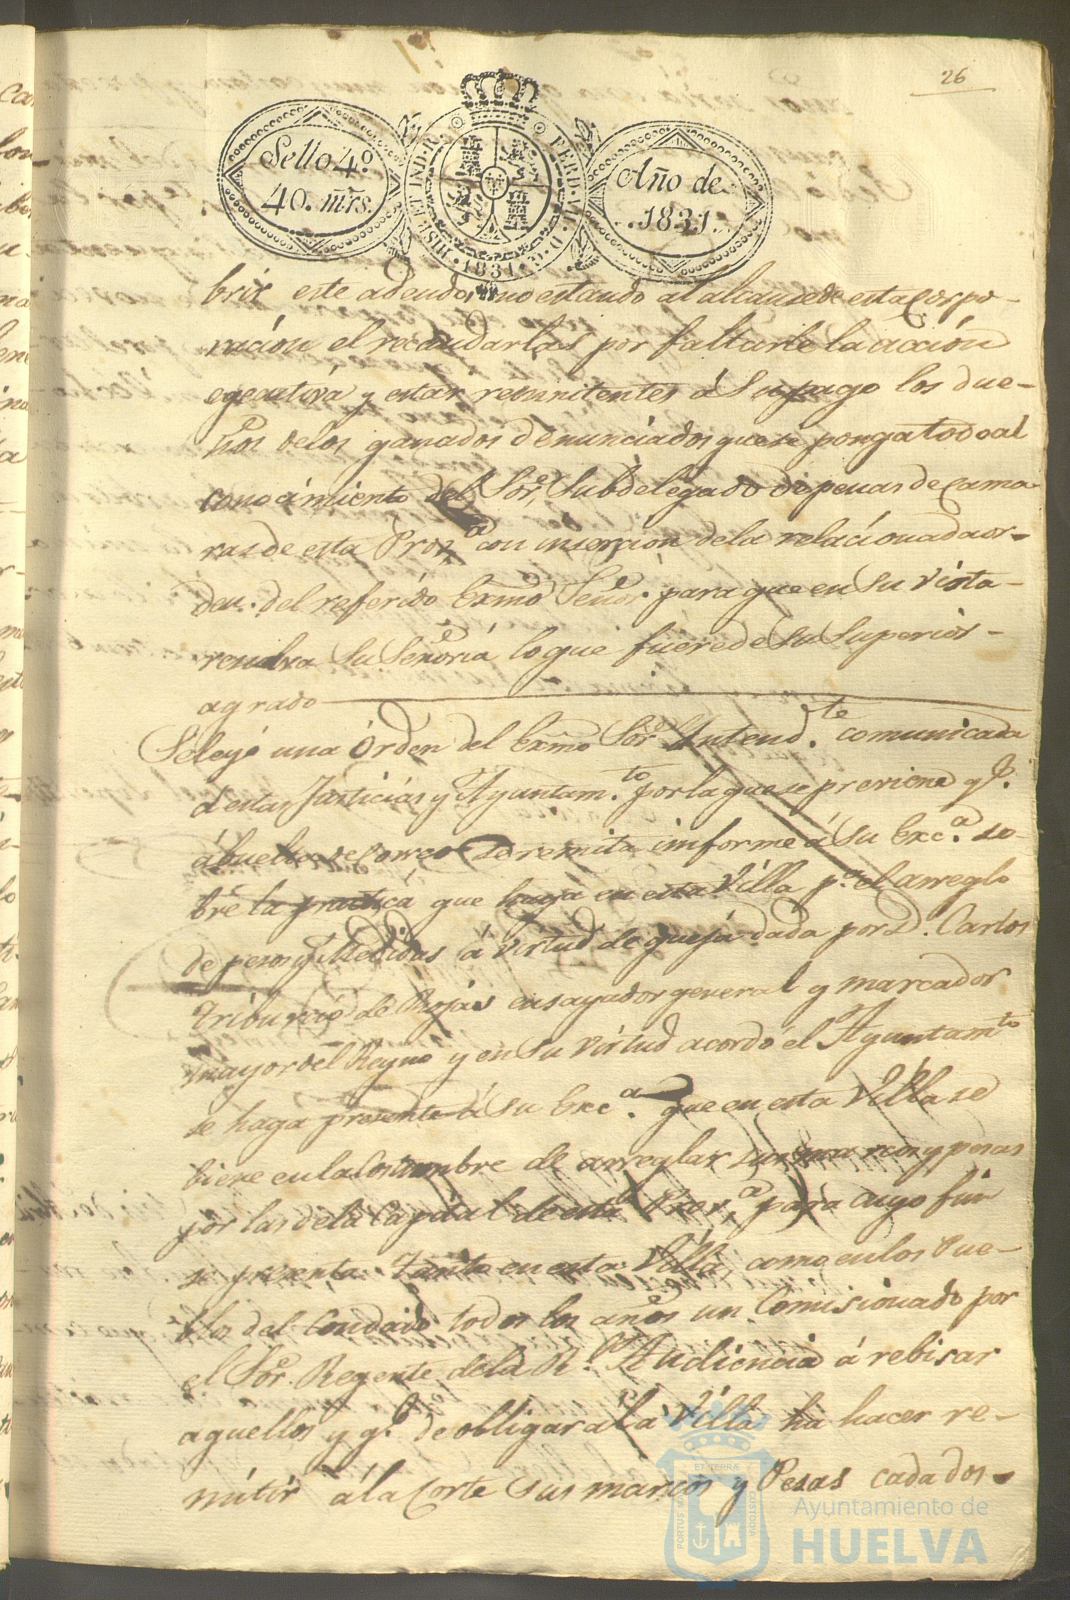 26
Sello 4º
40. mrs.
Año de
1831
HISP. ET IND. R. FERD. VII. D. G. 1831
brir este adeudo, no estando al alcance de esta Corpo-
ración el recaudarlas por faltarle la acción
egecutiva y estar resinitentes á Su pago los due-
ños delos ganados denunciados que se ponga todo al
conocimiento del Sor. Subdelegado de penas de Cama-
ras de esta Prov.ª con inserción dela relacionada or-
den. del referido Exmo Señor. para que en su vista
rendra Su Señoria lo que fuere de su Superior
agrado
Se leyó una Órden del Exmo Sor. Intend.te comunicada
á estas Justicias y Ayuntam.to por la que se previene q.e
ábuelta de Correo se remita informe á Su Exc.ª so-
bre la practica que haya en esta Villa p.a el arreglo
de pesos y Medidas á virtud de queja dada por D. Carlos
Triburcio de Rojas ensayador general y marcador
mayor del Reyno y en su virtud acordó el Ayuntam.to
se haga presente á Su Exc.ª que en esta Villa se
biene en la Costumbre de arreglar sus marcos y pesas
por las dela Capital de esta Prov.ª para cuyo fin
se presenta tanto en esta Villa como en los Pue-
blos del Condado todos los años un Comisionado por
el Sor. Regente dela R.l Audiencia á rebisar
aquellos y q.e de obligar a la Villa ha hacer re-
mitir á la Corte sus marcos y Pesas cada dos
PORTUS MARIS ET TERRÆ CUSTODIA
Ayuntamiento de
HUELVA